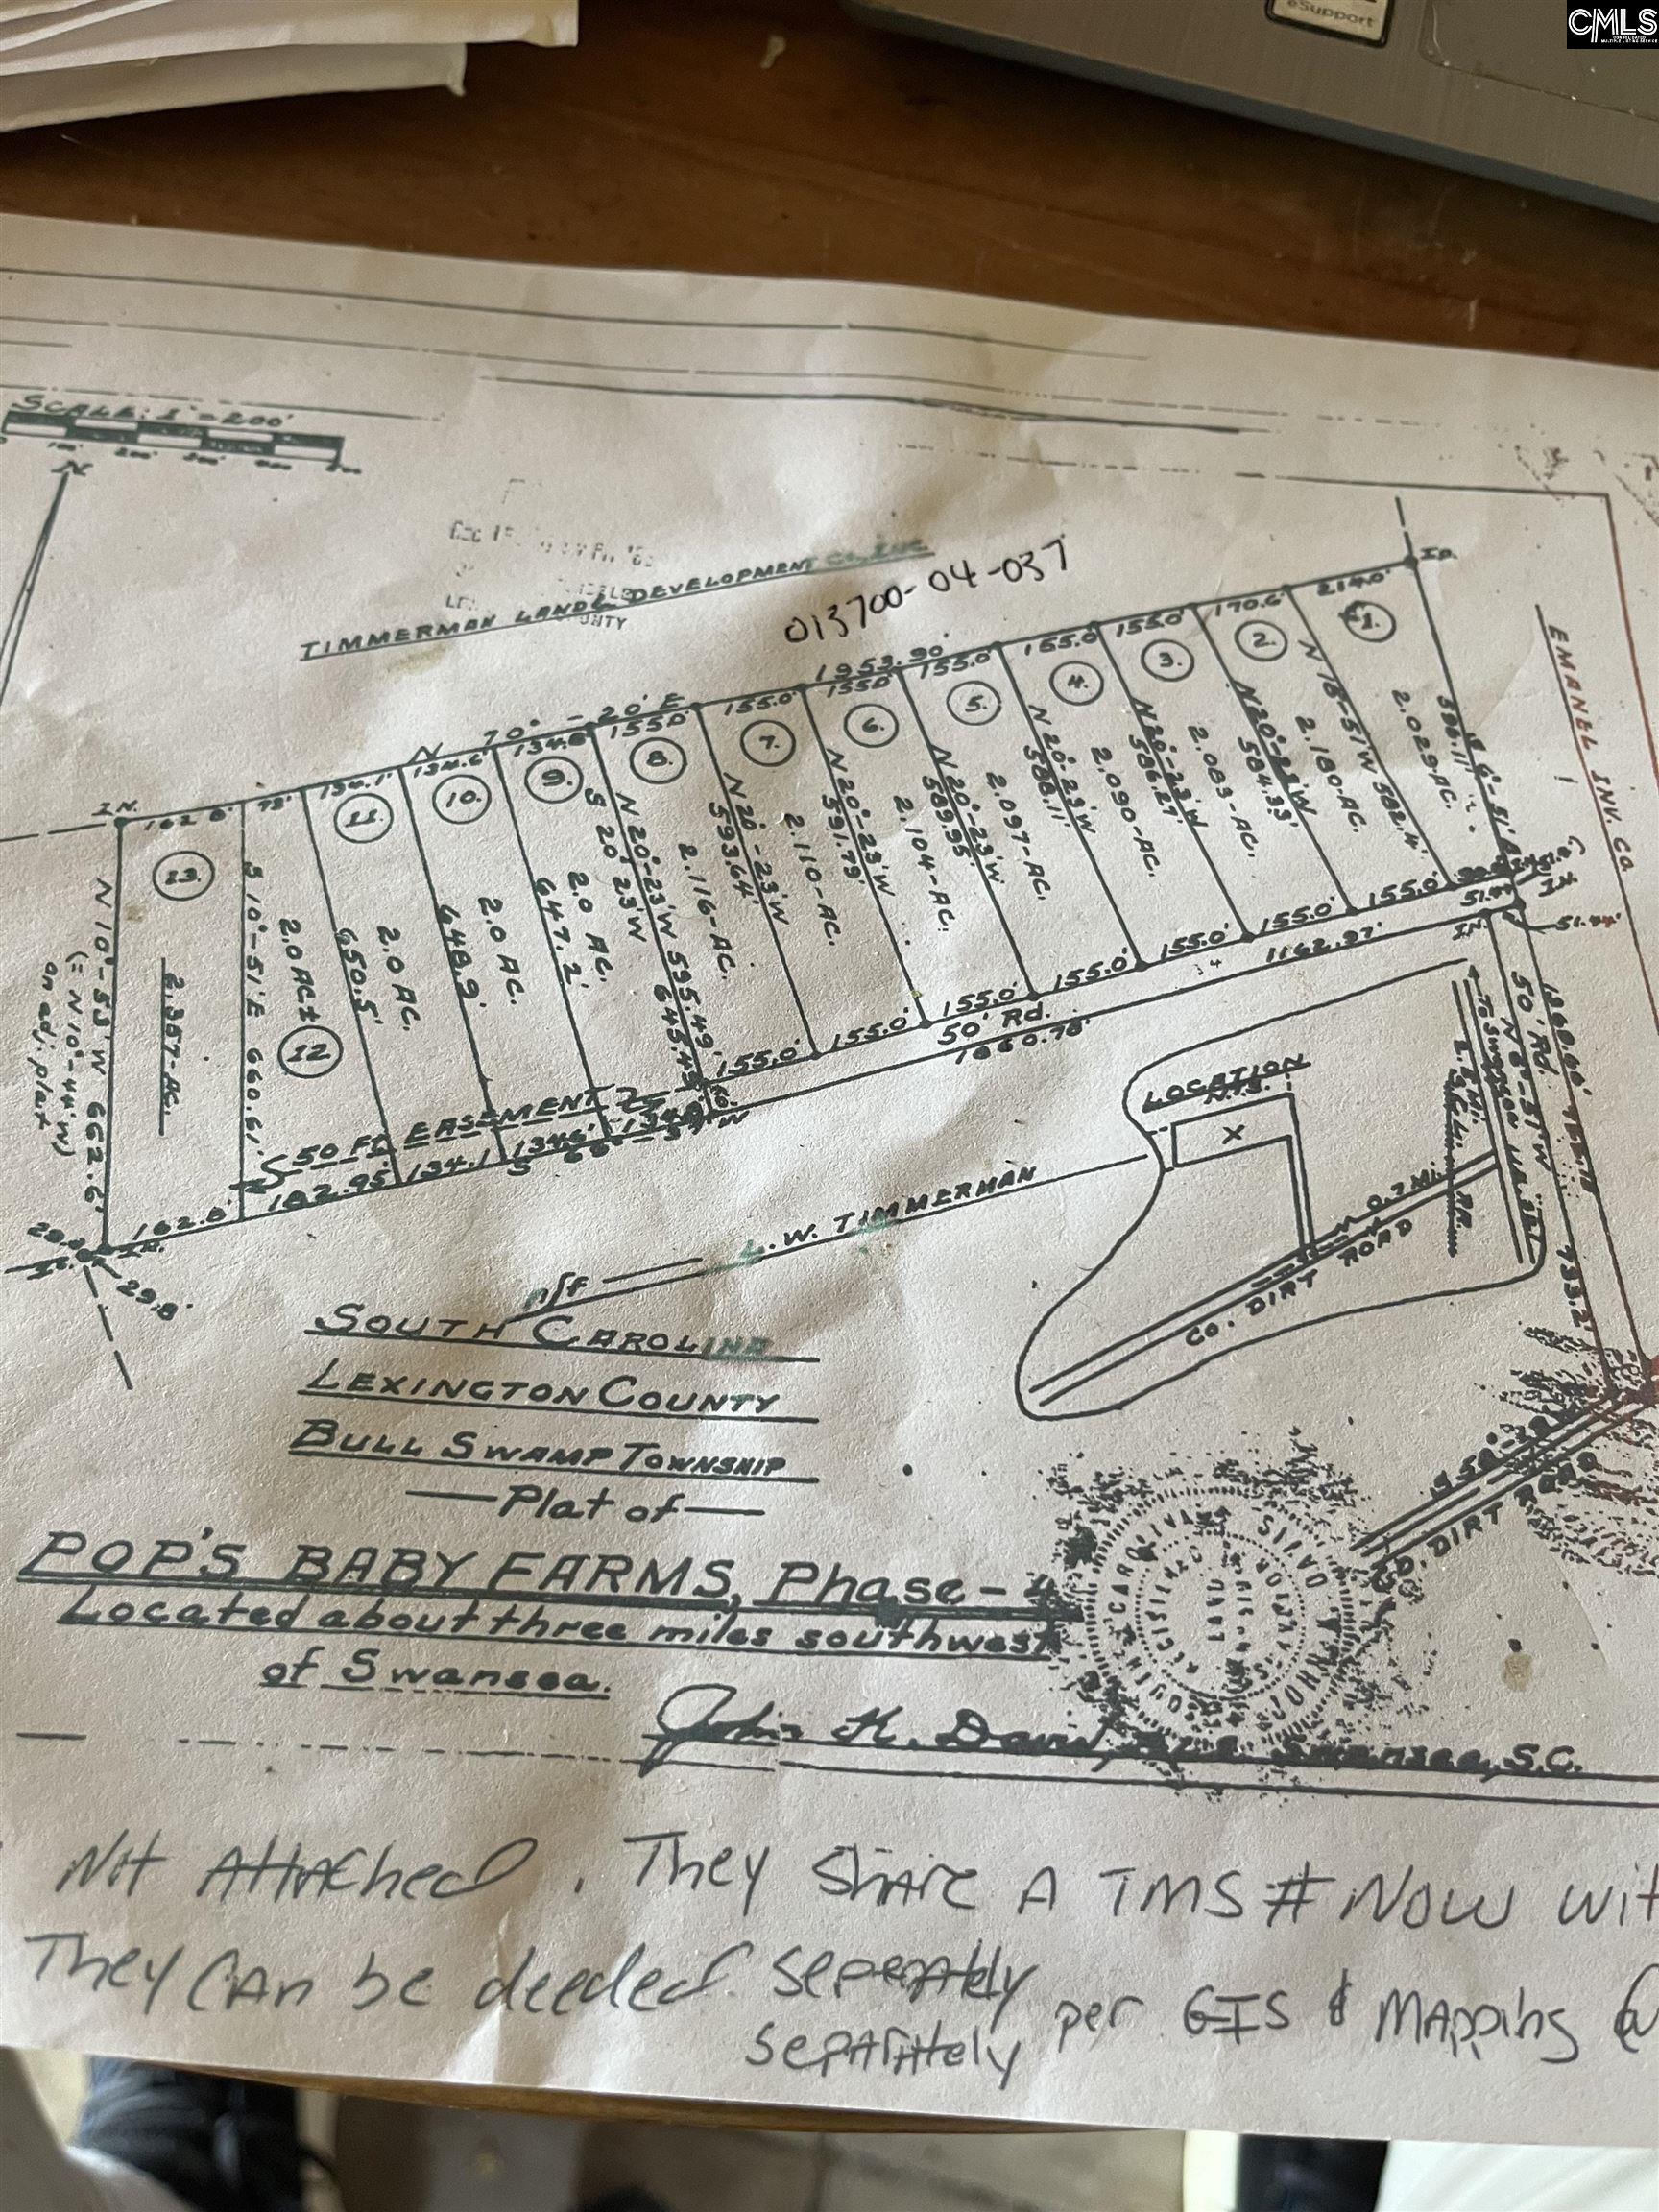 eSupport
CMLS
SCALE: 1" = 200'
N
TIMMERMAN LAND & DEVELOPMENT Co., INC.
013700-04-037
N 70° - 20' E
1953.90'
I.N.
162.8'
73'
134.1'
134.6'
134.8'
155.0'
155.0'
155.0'
155.0'
155.0'
155.0'
170.6'
214.0'
I.P.
EMANEL INV. CO.
1.
2.029-AC.
N 18°-51'W 582.4'
2.
2.180-AC.
N20°-23'W
584.33'
3.
2.083-AC.
N20°-23'W
586.27'
4.
2.090-AC.
N20°-23'W
588.11'
5.
2.097-AC.
N20°-23'W
589.95'
6.
2.104-AC.
N20°-23'W
591.79'
7.
2.110-AC.
N20°-23'W
593.64'
8.
2.116-AC.
N20°-23'W 595.49'
S 20° 23'W
9.
2.0 AC.
647.2'
10.
2.0 AC.
648.9'
11.
2.0 AC.
650.5'
2.0 AC±
12
S 10°-51'E 660.61'
13.
2.357-AC.
N 10°-53'W 662.6'
(= N 10°-44'W)
on adj. plat
50 FT. EASEMENT
155.0'
155.0'
155.0'
155.0'
155.0'
155.0'
155.0'
50' Rd.
1162.97'
1660.78'
162.8'
182.95'
134.1
134.6'
29.8'
I.N.
51.44'
50' Rd.
433.2'
LOCATION
N.T.S.
X
0.7 MI.
CO. DIRT ROAD
RR.
n/f L.W. TIMMERMAN
CO. DIRT ROAD
SOUTH CAROLINA
LEXINGTON COUNTY
BULL SWAMP TOWNSHIP
—Plat of—
POP'S BABY FARMS, Phase-4
Located about three miles southwest
of Swansea.
Swansea, S.C.
Not Attached. They share A TMS # Now wit
They can be deeded seperately
separately per GIS & Mapping @